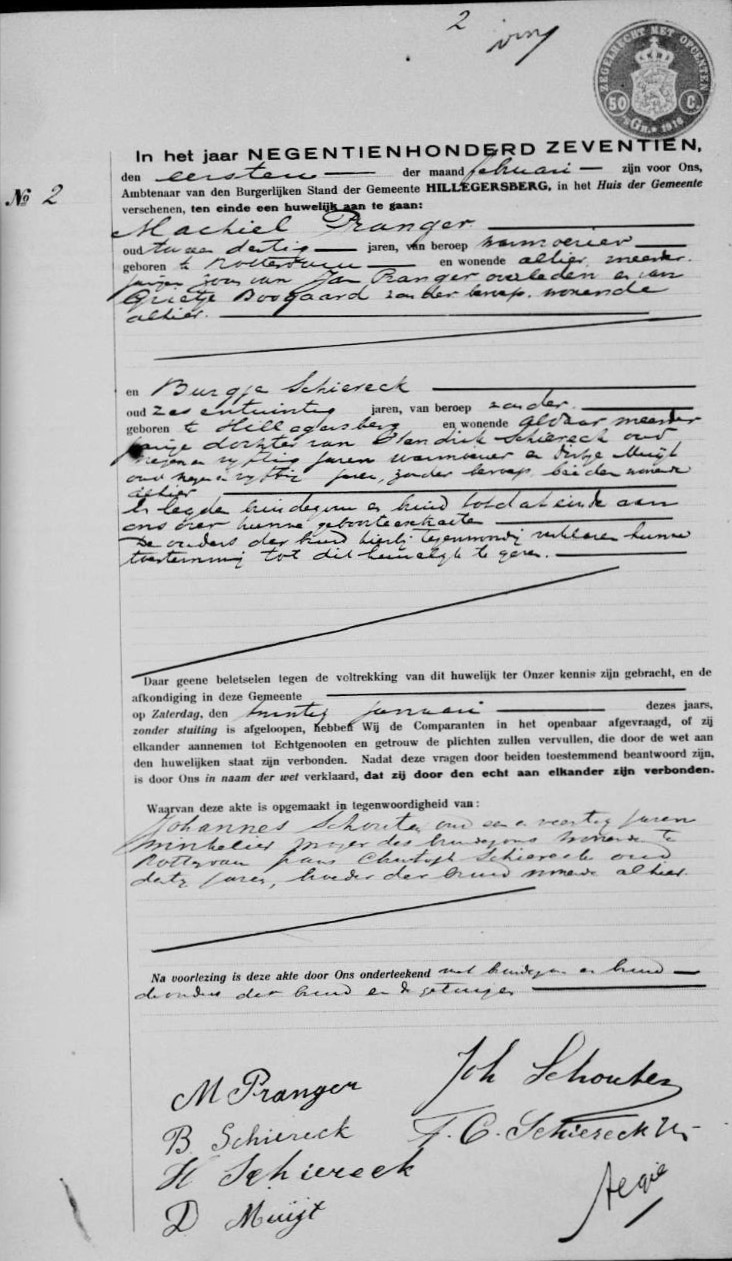 2
ZEGELRECHT MET OPCENTEN
50 C.
1916
In het jaar NEGENTIENHONDERD ZEVENTIEN,
den eersten — der maand februari — zijn voor Ons,
Nº 2
Ambtenaar van den Burgerlijken Stand der Gemeente HILLEGERSBERG, in het Huis der Gemeente
verschenen, ten einde een huwelijk aan te gaan:
Machiel Pranger
oud twee dertig jaren, van beroep warmoezier
geboren te Rotterdam en wonende alhier, meerder-
jarige zoon van Jan Pranger overleden en van
Grietje Boogaard zonder beroep, wonende
alhier.
en Burgje Schiereck
oud zes entwintig jaren, van beroep zonder.
geboren te Hillegersberg en wonende aldaar meerder
jarige dochter van Hendrik Schiereck oud
negen en vyftig jaren warmoezier en Dirkje Muijt
oud negen en vyftig jaren, zonder beroep, beiden wonende
alhier
Er legden bruidegom en bruid tot dat einde aan
ons over hunne geboorteextracten
De ouders der bruid hierbij tegenwoordig verklaren hunne
toestemming tot dit huwelijk te geven.
Daar geene beletselen tegen de voltrekking van dit huwelijk ter Onzer kennis zijn gebracht, en de
afkondiging in deze Gemeente
op Zaterdag, den twintig januari dezes jaars,
zonder stuiting is afgeloopen, hebben Wij de Comparanten in het openbaar afgevraagd, of zij
elkander aannemen tot Echtgenooten en getrouw de plichten zullen vervullen, die door de wet aan
den huwelijken staat zijn verbonden. Nadat deze vragen door beiden toestemmend beantwoord zijn,
is door Ons in naam der wet verklaard, dat zij door den echt aan elkander zijn verbonden.
Waarvan deze akte is opgemaakt in tegenwoordigheid van:
Johannes Schouten, oud een en veertig jaren
winkelier zwager des bruidegoms wonende te
Rotterdam Frans Christoph Schiereck oud
dertig jaren, broeder der bruid wonende alhier.
Na voorlezing is deze akte door Ons onderteekend met bruidegom en bruid
de ouders der bruid en de getuigen
M Pranger
Joh Schouten
B Schiereck
F. C. Schiereck Hz
H Schiereck
D Muijt